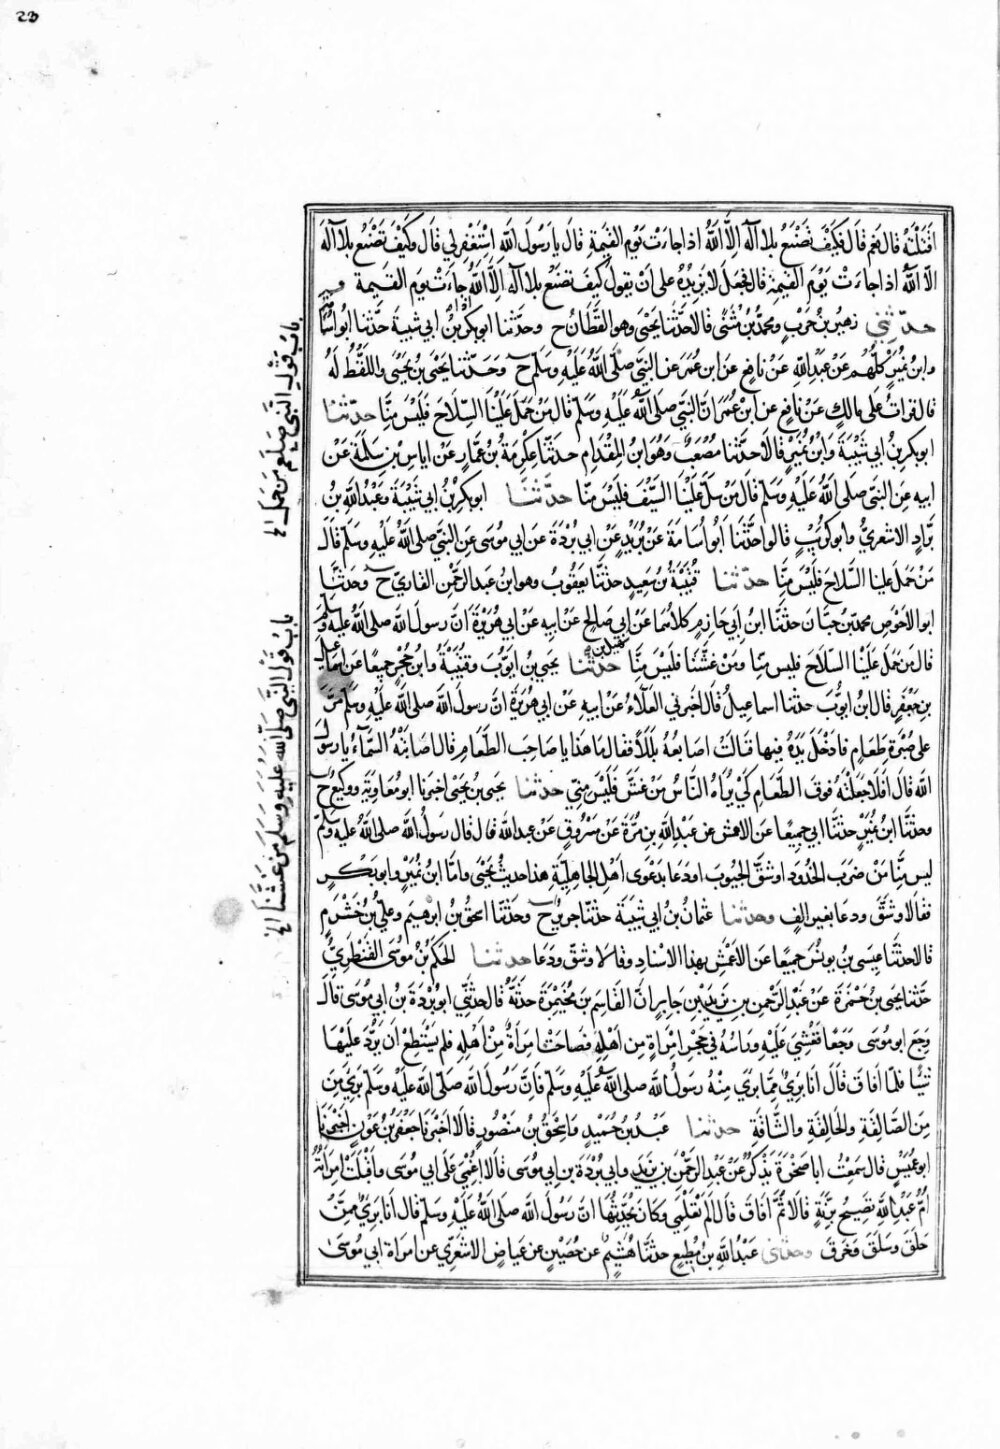 23
اقتلته قال نعم قال فكيف تصنع بلا اله الا الله اذا جاءت يوم القيمة قال يا رسول الله استغفر لي قال وكيف تصنع بلا اله
الا الله اذا جاءت يوم القيمة قال فجعل لا يزيده على ان يقول كيف تصنع بلا اله الا الله اذا جاءت يوم القيمة
حدثني زهير بن حرب ومحمد بن مثنى قالا حدثنا يحيى وهو القطان ح وحدثنا ابوبكر بن ابي شيبة حدثنا ابواسامة
وابن نمير كلهم عن عبدالله عن نافع عن ابن عمر عن النبي صلى الله عليه وسلم ح وحدثنا يحيى بن يحيى واللفظ له
قال قرات على مالك عن نافع عن ابن عمر ان النبي صلى الله عليه وسلم قال من حمل علينا السلاح فليس منا حدثنا
ابوبكر بن ابي شيبة وابن نمير قالا حدثنا مصعب وهو ابن المقدام حدثنا عكرمة بن عمار عن اياس بن سلمة عن
ابيه عن النبي صلى الله عليه وسلم قال من سل علينا السيف فليس منا حدثنا ابوبكر بن ابي شيبة وعبدالله بن
براد الاشعري وابوكريب قالوا حدثنا ابواسامة عن بريد عن ابي بردة عن ابي موسى عن النبي صلى الله عليه وسلم قال
من حمل علينا السلاح فليس منا حدثنا قتيبة بن سعيد حدثنا يعقوب وهو ابن عبد الرحمن القاري ح وحدثنا
ابوالاحوص محمد بن حيان حدثنا ابن ابي حازم كلاهما عن سهيل بن ابي صالح عن ابيه عن ابي هريرة ان رسول الله صلى الله عليه وسلم
قال من حمل علينا السلاح فليس منا ومن غشنا فليس منا حدثنا يحيى بن ايوب وقتيبة وابن حجر جميعا عن اسماعيل
بن جعفر قال ابن ايوب حدثنا اسماعيل قال اخبرني العلاء عن ابيه عن ابي هريرة ان رسول الله صلى الله عليه وسلم مر
على صبرة طعام فادخل يده فيها فنالت اصابعه بللا فقال ما هذا يا صاحب الطعام قال اصابته السماء يا رسول
الله قال افلا جعلته فوق الطعام كي يراه الناس من غش فليس مني حدثنا يحيى بن يحيى اخبرنا ابو معاوية ووكيع ح
وحدثنا ابن نمير حدثنا ابي جميعا عن الاعمش عن عبدالله بن مرة عن مسروق عن عبدالله قال قال رسول الله صلى الله عليه وسلم
ليس منا من ضرب الخدود او شق الجيوب او دعا بدعوى اهل الجاهلية هذا حديث يحيى واما ابن نمير وابوبكر
فقالا وشق ودعا بغير الف وحدثنا عثمان بن ابي شيبة حدثنا جرير ح وحدثنا اسحق بن ابرهيم وعلي بن خشرم
قالا حدثنا عيسى بن يونس جميعا عن الاعمش بهذا الاسناد وقالا وشق ودعا حدثنا الحكم بن موسى القنطري
حدثنا يحيى بن حمزة عن عبد الرحمن بن يزيد بن جابر ان القاسم بن مخيمرة حدثه قال حدثني ابوبردة بن ابي موسى قال
وجع ابوموسى وجعا فغشي عليه وراسه في حجر امراة من اهله فصاحت امراة من اهله فلم يستطع ان يرد عليها
شيئا فلما افاق قال انا بريء مما بريء منه رسول الله صلى الله عليه وسلم فان رسول الله صلى الله عليه وسلم بريء من
من الصالقة والحالقة والشاقة حدثنا عبد بن حميد واسحق بن منصور قالا اخبرنا جعفر بن عون اخبرنا
ابوعميس قال سمعت ابا صخرة يذكر عن عبد الرحمن بن يزيد وابي بردة بن ابي موسى قالا اغمي على ابي موسى واقبلت امراته
ام عبدالله تصيح برنة قالا ثم افاق قال الم تعلمي وكان يحدثها ان رسول الله صلى الله عليه وسلم قال انا بريء ممن
حلق وسلق وخرق وحدثني عبدالله بن مطيع حدثنا هشيم عن حصين عن عياض الاشعري عن امراة ابي موسى
باب قول النبي صلعم من حمل الخ
باب قول النبي صلى الله عليه وسلم من غشنا الخ